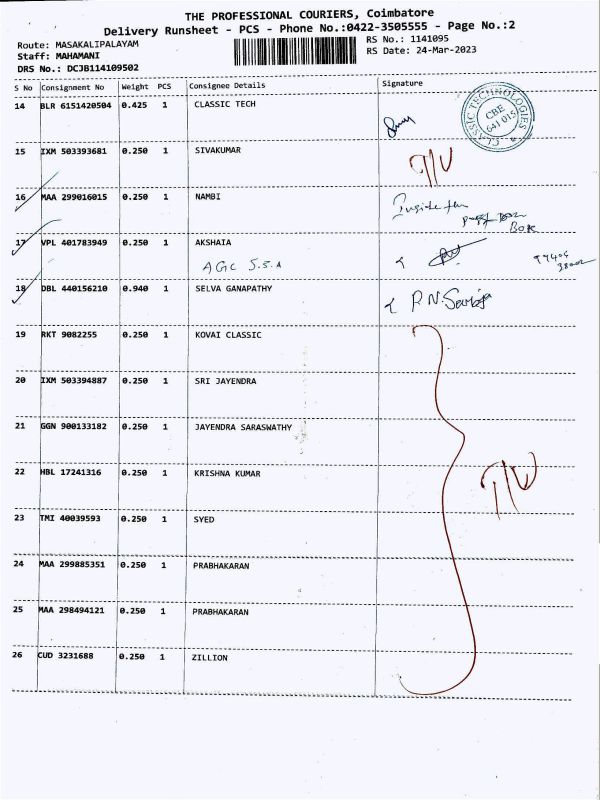 THE PROFESSIONAL COURIERS, Coimbatore
Delivery Runsheet - PCS - Phone No.:0422-3505555 - Page No.:2
Route: MASAKALIPALAYAM
Staff: MAHAMANI
DRS No.: DCJB114109502
RS No.: 1141095
RS Date: 24-Mar-2023
S No Consignment No Weight PCS Consignee Details Signature
14 BLR 6151420504 0.425 1 CLASSIC TECH
CLASSIC TECHNOLOGIES CBE 641 015
15 IXM 503393681 0.250 1 SIVAKUMAR
16 MAA 299016015 0.250 1 NAMBI Inside the
Box
17 VPL 401783949 0.250 1 AKSHAIA
AGC S.S.A
18 DBL 440156210 0.940 1 SELVA GANAPATHY
19 RKT 9082255 0.250 1 KOVAI CLASSIC
20 IXM 503394887 0.250 1 SRI JAYENDRA
21 GGN 900133182 0.250 1 JAYENDRA SARASWATHY
22 HBL 17241316 0.250 1 KRISHNA KUMAR
23 TMI 40039593 0.250 1 SYED
24 MAA 299885351 0.250 1 PRABHAKARAN
25 MAA 298494121 0.250 1 PRABHAKARAN
26 CUD 3231688 0.250 1 ZILLION